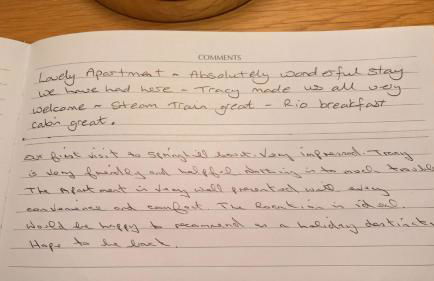 COMMENTS
Lovely Apartment ~ Absolutely wonderful stay
we have had here ~ Tracy made us all very
welcome ~ Steam Train great - Rio breakfast
cabin great.
first visit to Springhill. Very impressed. Tracy
is very friendly and helpful. Nothing is to much trouble
The Apartment is very well presented with every
convenience and comfort. The location is ideal.
Would be happy to recommend as a holiday
Hope to be back.